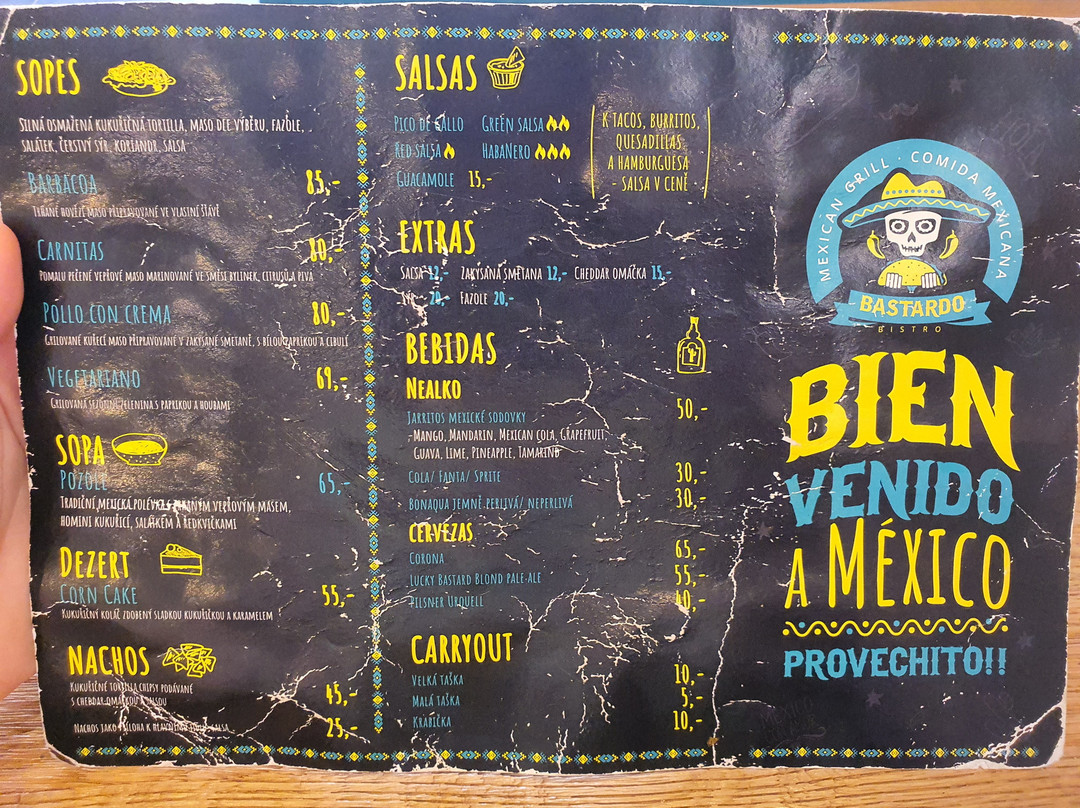 SOPES
SILNÁ OSMAŽENÁ KUKUŘIČNÁ TORTILLA, MASO DLE VÝBĚRU, FAZOLE,
SALÁTEK, ČERSTVÝ SÝR, KORIANDR, SALSA
BARBACOA 85,-
TRHANÉ HOVĚZÍ MASO PŘIPRAVOVANÉ VE VLASTNÍ ŠŤÁVĚ
CARNITAS 80,-
POMALU PEČENÉ VEPŘOVÉ MASO MARINOVANÉ VE SMĚSI BYLINEK, CITRUSŮ A PIVA
POLLO CON CREMA 80,-
GRILOVANÉ KUŘECÍ MASO PŘIPRAVOVANÉ V ZAKYSANÉ SMETANĚ, S BÍLOU PAPRIKOU A CIBULÍ
VEGETARIANO 69,-
GRILOVANÁ SEZÓNNÍ ZELENINA S PAPRIKOU A HOUBAMI
SOPA
POZOLE 65,-
TRADIČNÍ MEXICKÁ POLÉVKA S TRHANÝM VEPŘOVÝM MASEM,
HOMINI KUKUŘICÍ, SALÁTKEM A ŘEDKVIČKAMI
DEZERT
CORN CAKE 55,-
KUKUŘIČNÝ KOLÁČ ZDOBENÝ SLADKOU KUKUŘIČKOU A KARAMELEM
NACHOS
KUKUŘIČNÉ TORTILLA CHIPSY PODÁVANÉ
S CHEDDAR OMÁČKOU A SALSOU 45,-
NACHOS JAKO PŘÍLOHA K HLAVNÍMU SALSA 25,-
SALSAS
PICO DE GALLO GREEN SALSA
RED SALSA HABANERO
GUACAMOLE 15,-
K TACOS, BURRITOS,
QUESADILLAS
A HAMBURGUESA
- SALSA V CENĚ
EXTRAS
SALSA 12,- ZAKYSANÁ SMETANA 12,- CHEDDAR OMÁČKA 15,-
SÝR 20,- FAZOLE 20,-
BEBIDAS
NEALKO
JARRITOS MEXICKÉ SODOVKY 50,-
- MANGO, MANDARIN, MEXICAN COLA, GRAPEFRUIT,
GUAVA, LIME, PINEAPPLE, TAMARIND
COLA/ FANTA/ SPRITE 30,-
BONAQUA JEMNĚ PERLIVÁ/ NEPERLIVÁ 30,-
CERVEZAS
CORONA 65,-
LUCKY BASTARD BLOND PALE-ALE 55,-
PILSNER URQUELL 40,-
CARRYOUT
VELKÁ TAŠKA 10,-
MALÁ TAŠKA 5,-
KRABIČKA 10,-
MEXICAN GRILL · COMIDA MEXICANA
BASTARDO
BISTRO
BIEN
VENIDO
A MÉXICO
PROVECHITO!!